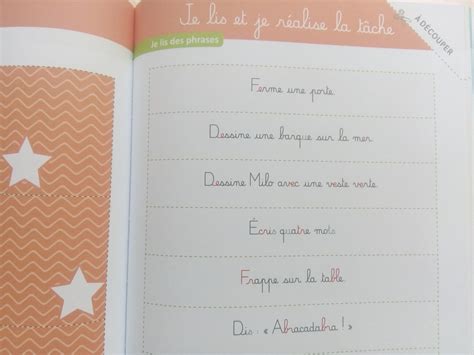 Je lis et je réalise la tâche
À DÉCOUPER
Je lis des phrases
Ferme une porte.
Dessine une barque sur la mer.
Dessine Milo avec une veste verte.
Écris quatre mots.
Frappe sur la table.
Dis : « Abracadabra ! »